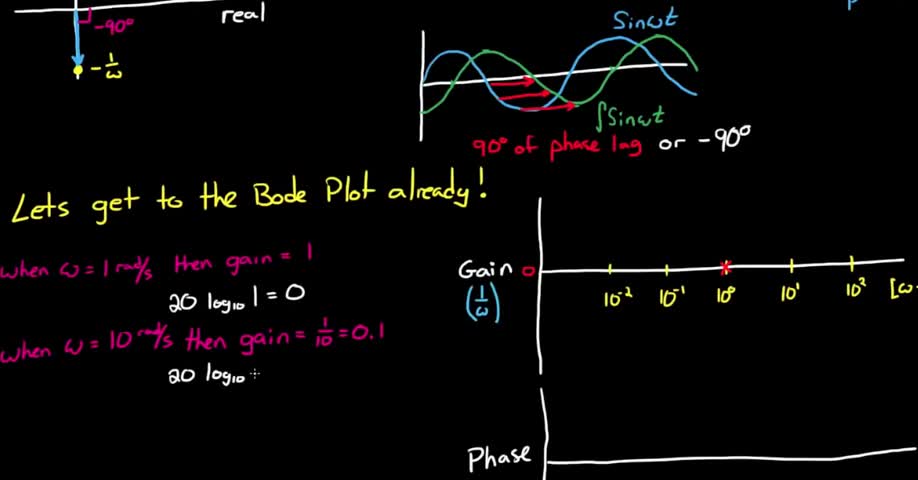 real
-90°
-1/ω
Sinωt
∫Sinωt
90° of phase lag or -90°
Lets get to the Bode Plot already!
when ω = 1 rad/s then gain = 1
20 log₁₀ 1 = 0
when ω = 10 rad/s then gain = 1/10 = 0.1
20 log₁₀
Gain 0
(1/ω)
10⁻² 10⁻¹ 10⁰ 10¹ 10² [ω
Phase